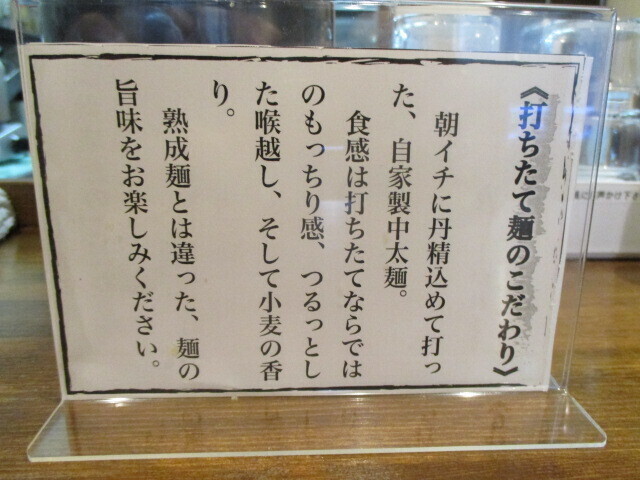 《打ちたて麺のこだわり》
朝イチに丹精込めて打っ
た、自家製中太麺。
食感は打ちたてならでは
のもっちり感、つるっとし
た喉越し、そして小麦の香
り。
熟成麺とは違った、麺の
旨味をお楽しみください。